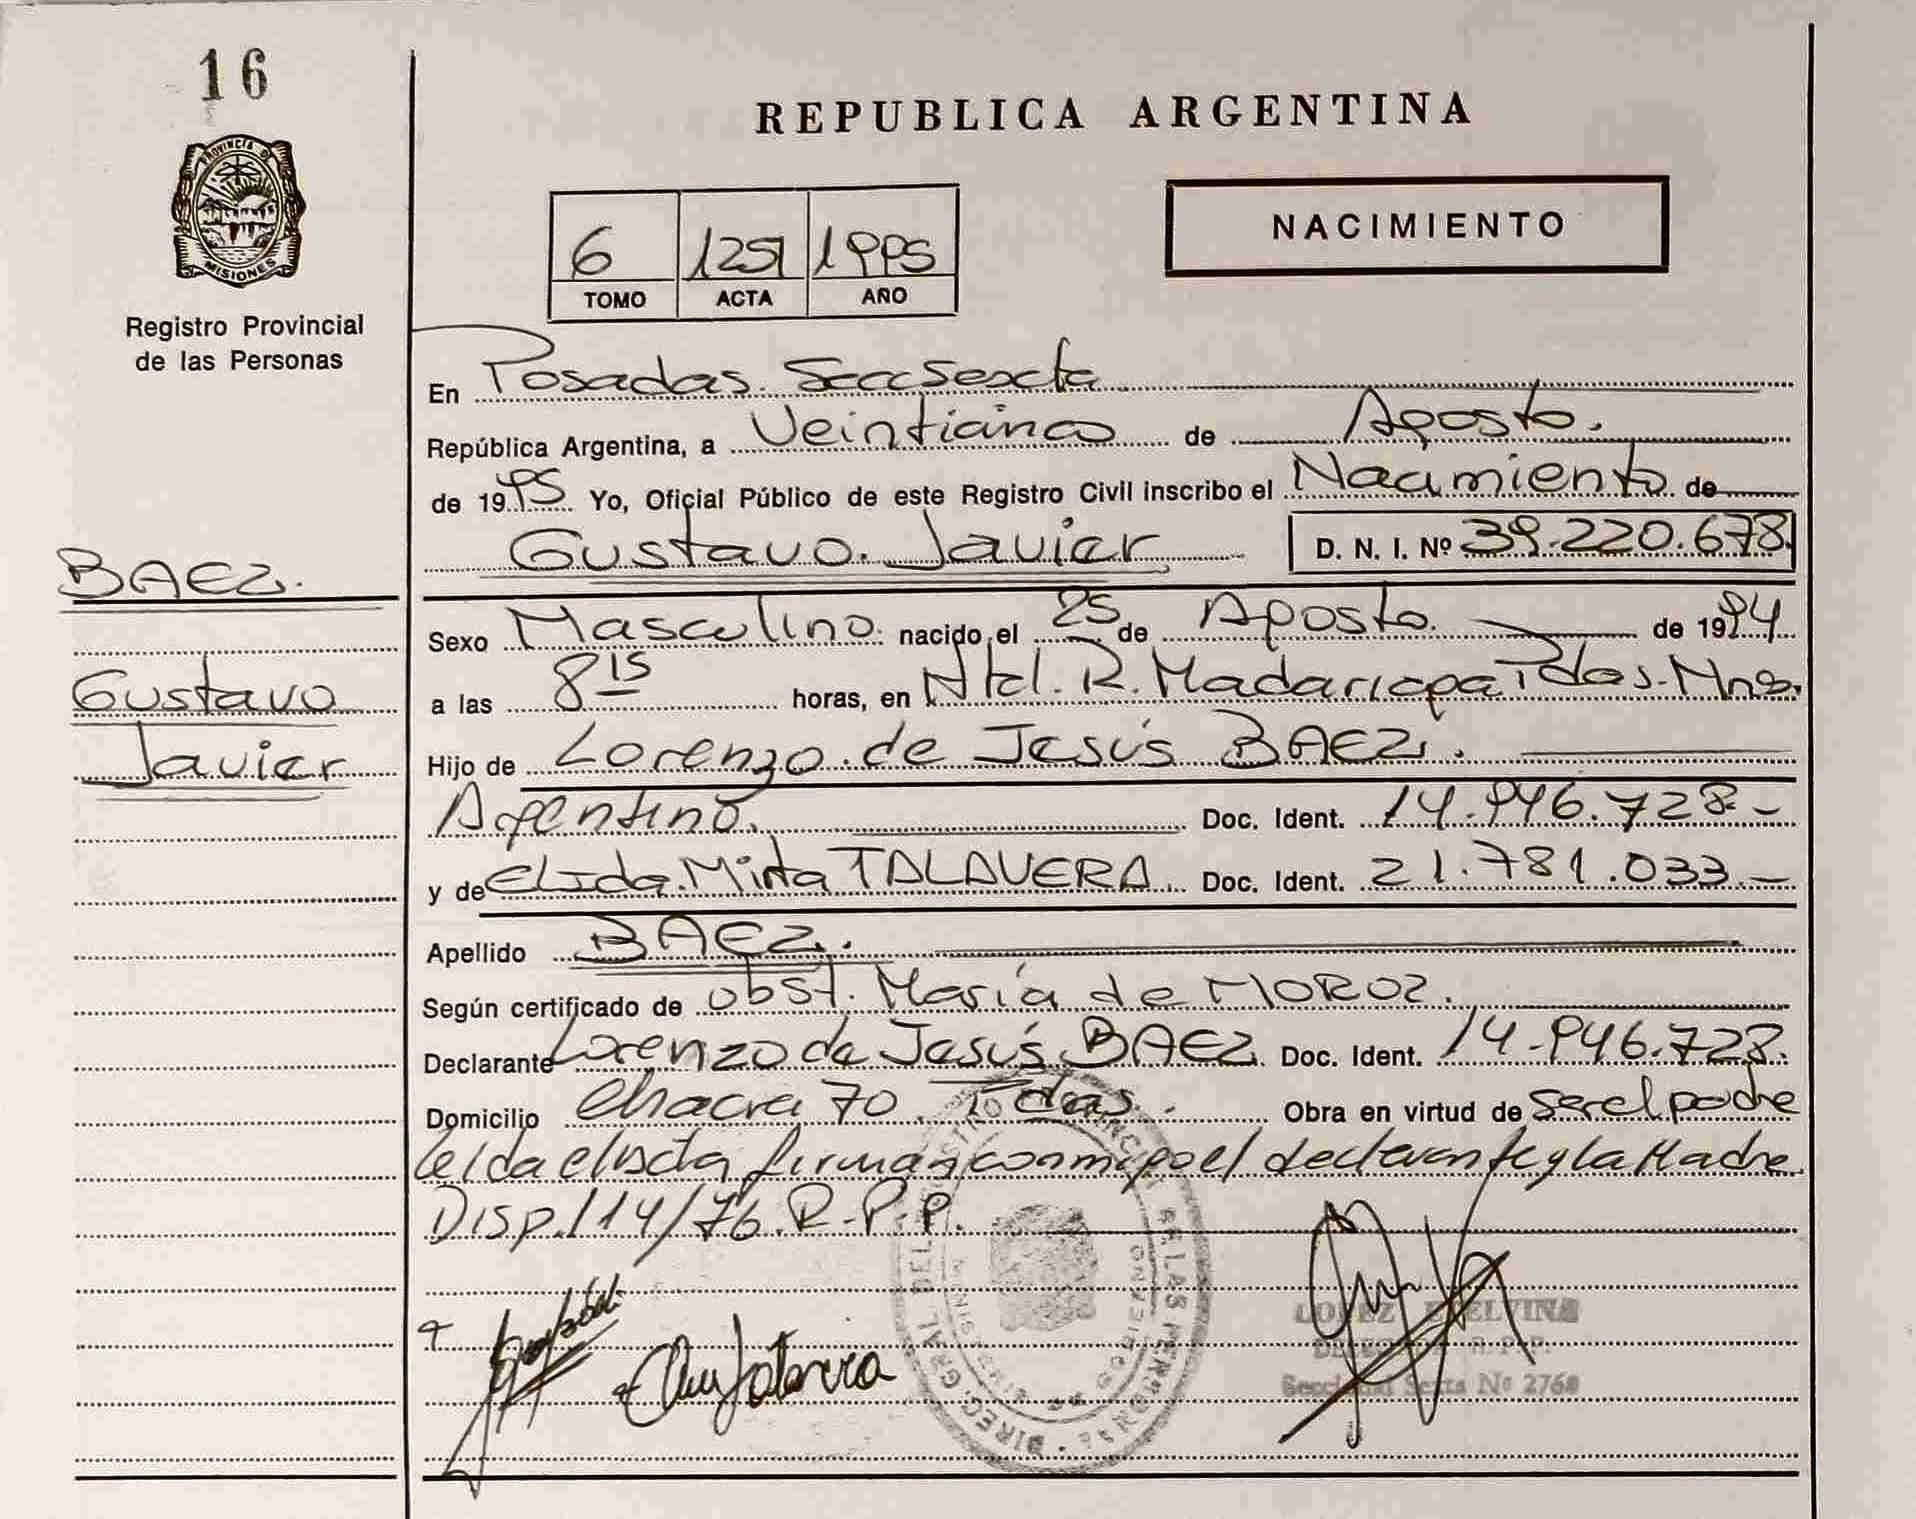 16
PROVINCIA DE
MISIONES
Registro Provincial
de las Personas
BAEZ.
Gustavo
Javier
REPUBLICA ARGENTINA
NACIMIENTO
6 1251 1995
TOMO ACTA AÑO
En Posadas. Secc Sexta
República Argentina, a Veinticinco de Agosto.
de 1995 Yo, Oficial Público de este Registro Civil inscribo el Nacimiento de
Gustavo. Javier D. N. I. Nº 39.220.678.
Sexo Masculino. nacido el 25 de Agosto. de 1994
a las 8 15 horas, en Ntd. R. Madariaga Pdas. Mns.
Hijo de Lorenzo. de Jesús BAEZ.
Argentino. Doc. Ident. 14.946.728.-
y de Elida. Mirta TALAVERA. Doc. Ident. 21.781.033.-
Apellido BAEZ.
Según certificado de obst. María de MOROZ.
Declarante Lorenzo de Jesús BAEZ. Doc. Ident. 14.946.728.
Domicilio Chacra 70. Pdas. Obra en virtud de ser el padre
leída el acta, firman conmigo el declarante y la Madre.
Disp. 114/76. R.P.P.
LOPEZ ETELVINA
R. P. P.
Seccional Sexta Nº 2768